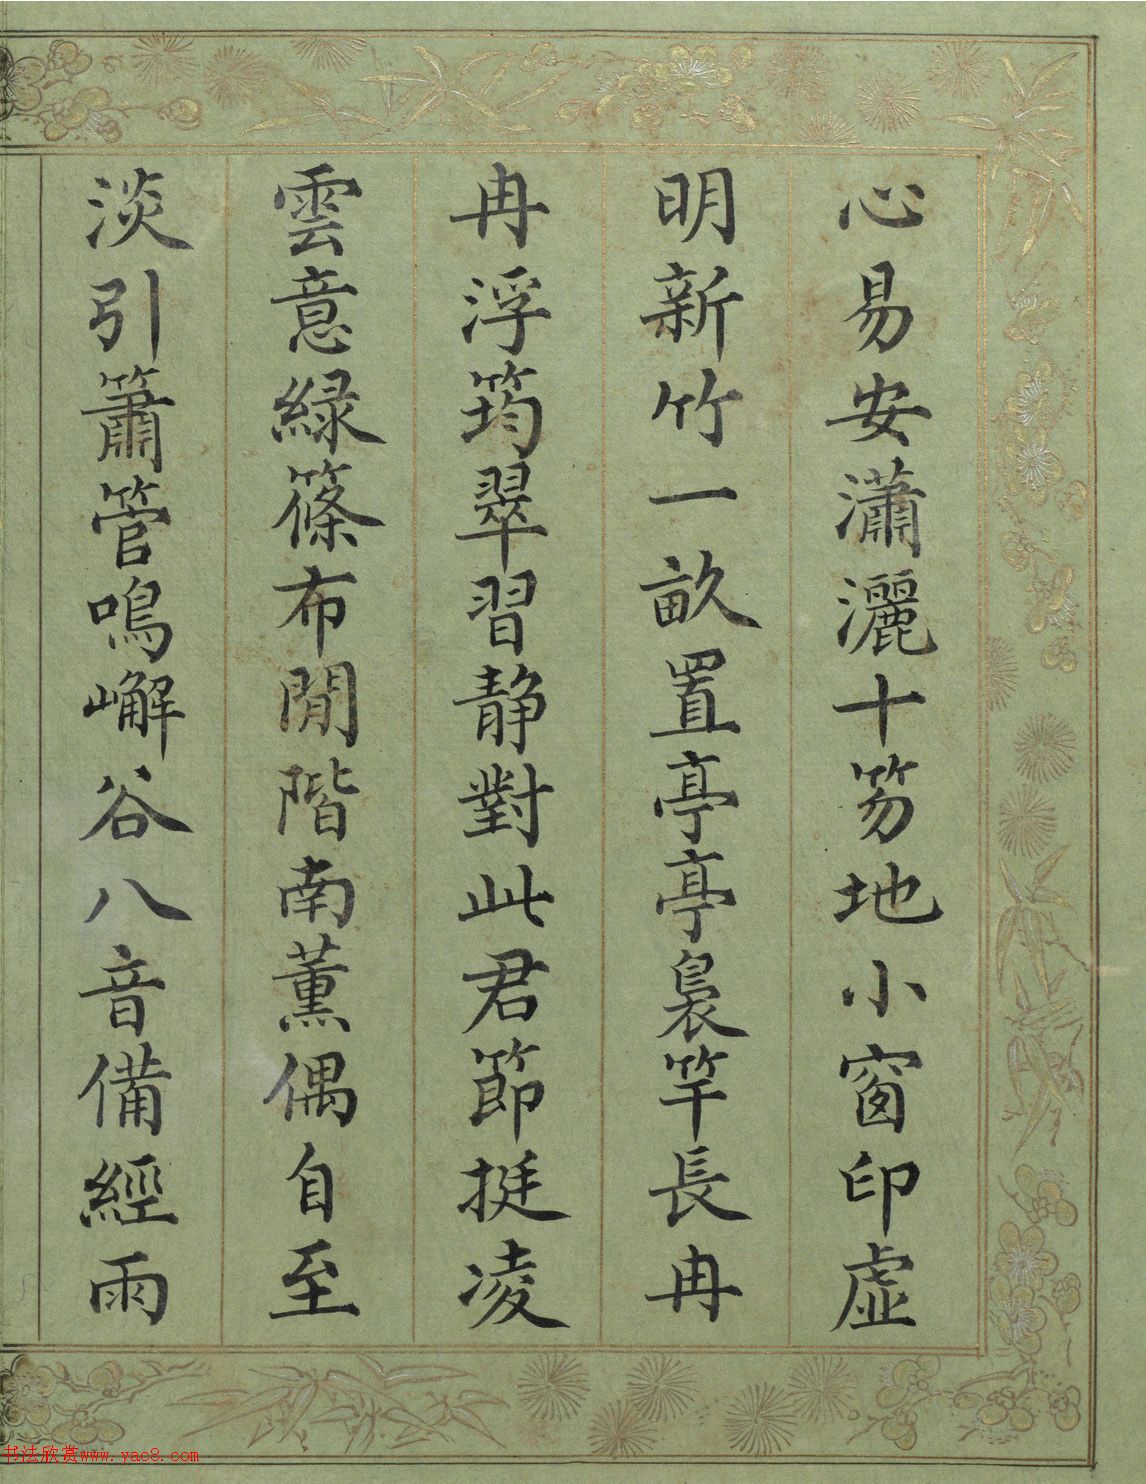 心易安瀟灑十笏地小窗印虛
明新竹一畝置亭亭裊竿長冉
冉浮筠翠習静對此君節挺凌
雲意緑篠布閒階南薰偶自至
淡引簫管鳴嶰谷八音備經雨
书法欣赏www.yac8.com